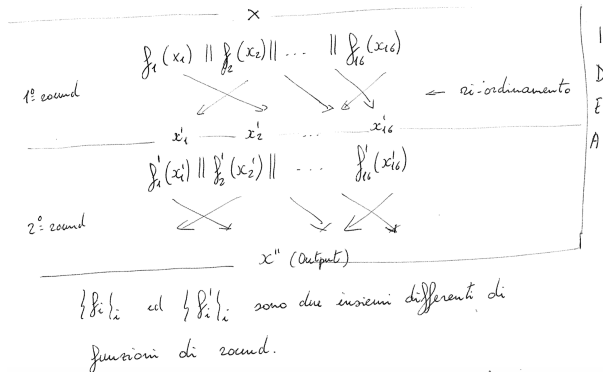 x
f₁(x₁) || f₂(x₂) || ... || f₁₆(x₁₆)
1° round
← ri-ordinamento
I
D
E
A
x'₁ x'₂ x'₁₆
f'₁(x'₁) || f'₂(x'₂) || ... f'₁₆(x'₁₆)
2° round
x'' (Output)
{fᵢ}ᵢ ed {f'ᵢ}ᵢ sono due insiemi differenti di
funzioni di round.